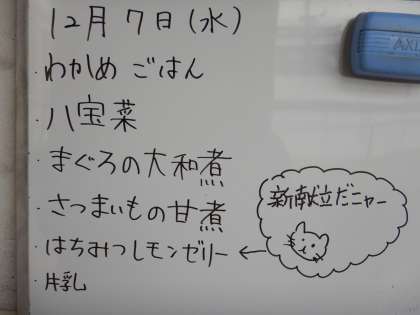 12月7日(水)
・わかめ ごはん
・八宝菜
・まぐろの大和煮
・さつまいもの甘煮
・はちみつレモンゼリー ←
・牛乳
新献立だニャー
AXL